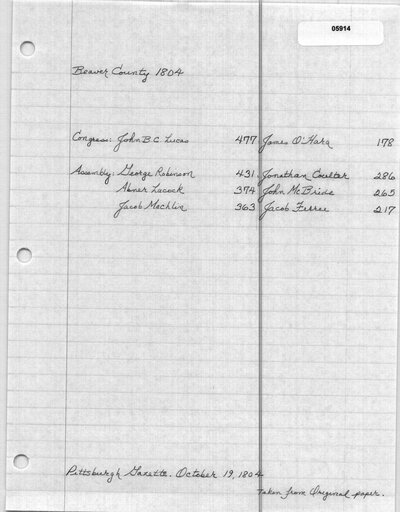 05914
Beaver County 1804
Congress: John B.C. Lucas 477 James O'Hara 178
Assembly: George Robinson 431 Jonathan Coulter 286
Abner Lacock 374 John McBride 265
Jacob Mechlin 363 Jacob Ferree 217
Pittsburgh Gazette. October 19, 1804
Taken from Original paper.